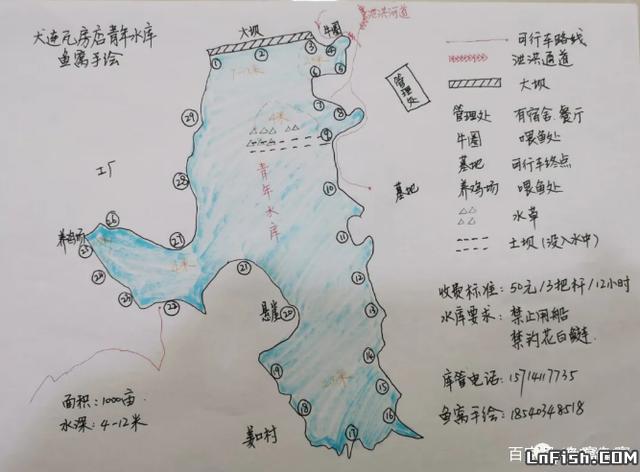 大连瓦房店青年水库
鱼窝手绘
大坝
牛圈
泄洪河道
① ② ③ ④ ⑤ ⑥ ⑦ ⑧ ⑨ ⑩ ⑪ ⑫ ⑬ ⑭ ⑮ ⑯ ⑰ ⑱ ⑲ ⑳ ㉑ ㉒ ㉓ ㉔ ㉕ ㉖ ㉗ ㉘ ㉙
4米
管理处
青年水库
工厂
基地
养鸡场
悬崖
姜口村
面积:1000亩
水深:4-12米
可行车路线
泄洪通道
大坝
管理处 有宿舍.餐厅
牛圈 喂鱼处
基地 可行车终点
养鸡场 喂鱼处
水草
土坝(没入水中)
收费标准:50元/3把杆/12小时
水库要求:禁止用船
禁钓花白鲢.
库管电话:15714117735
鱼窝手绘:18540348518
LnFish.com